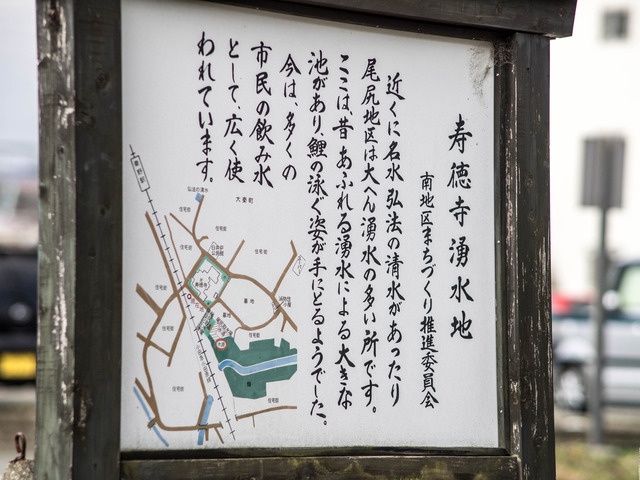 寿徳寺湧水地
南地区まちづくり推進委員会
近くに名水 弘法の清水があったり
尾尻地区は大へん湧水の多い所です。
ここは、昔 あふれる湧水による大きな
池があり、鯉の泳ぐ姿が手にとるようでした。
今は、多くの
市民の飲み水
として、広く使
われています。
秦野駅
弘法の清水
大秦町
住宅街
住宅街
住宅街
住宅街
住宅街
住宅街
墓地
住宅街
住宅街
住宅街
住宅街